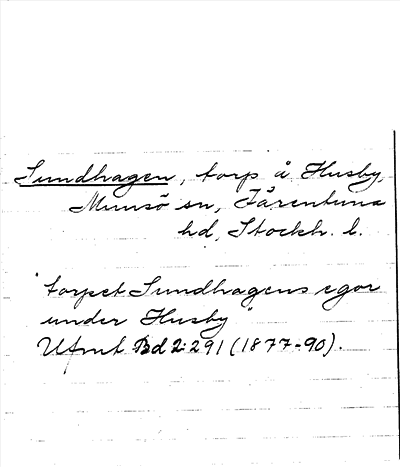 Sundhagen, torp å Husby,
Munsö sn, Färentuna
hd, Stockh. l.
"torpet Sundhagens egor
under Husby"
Utmt Bd 2:291 (1877-90).